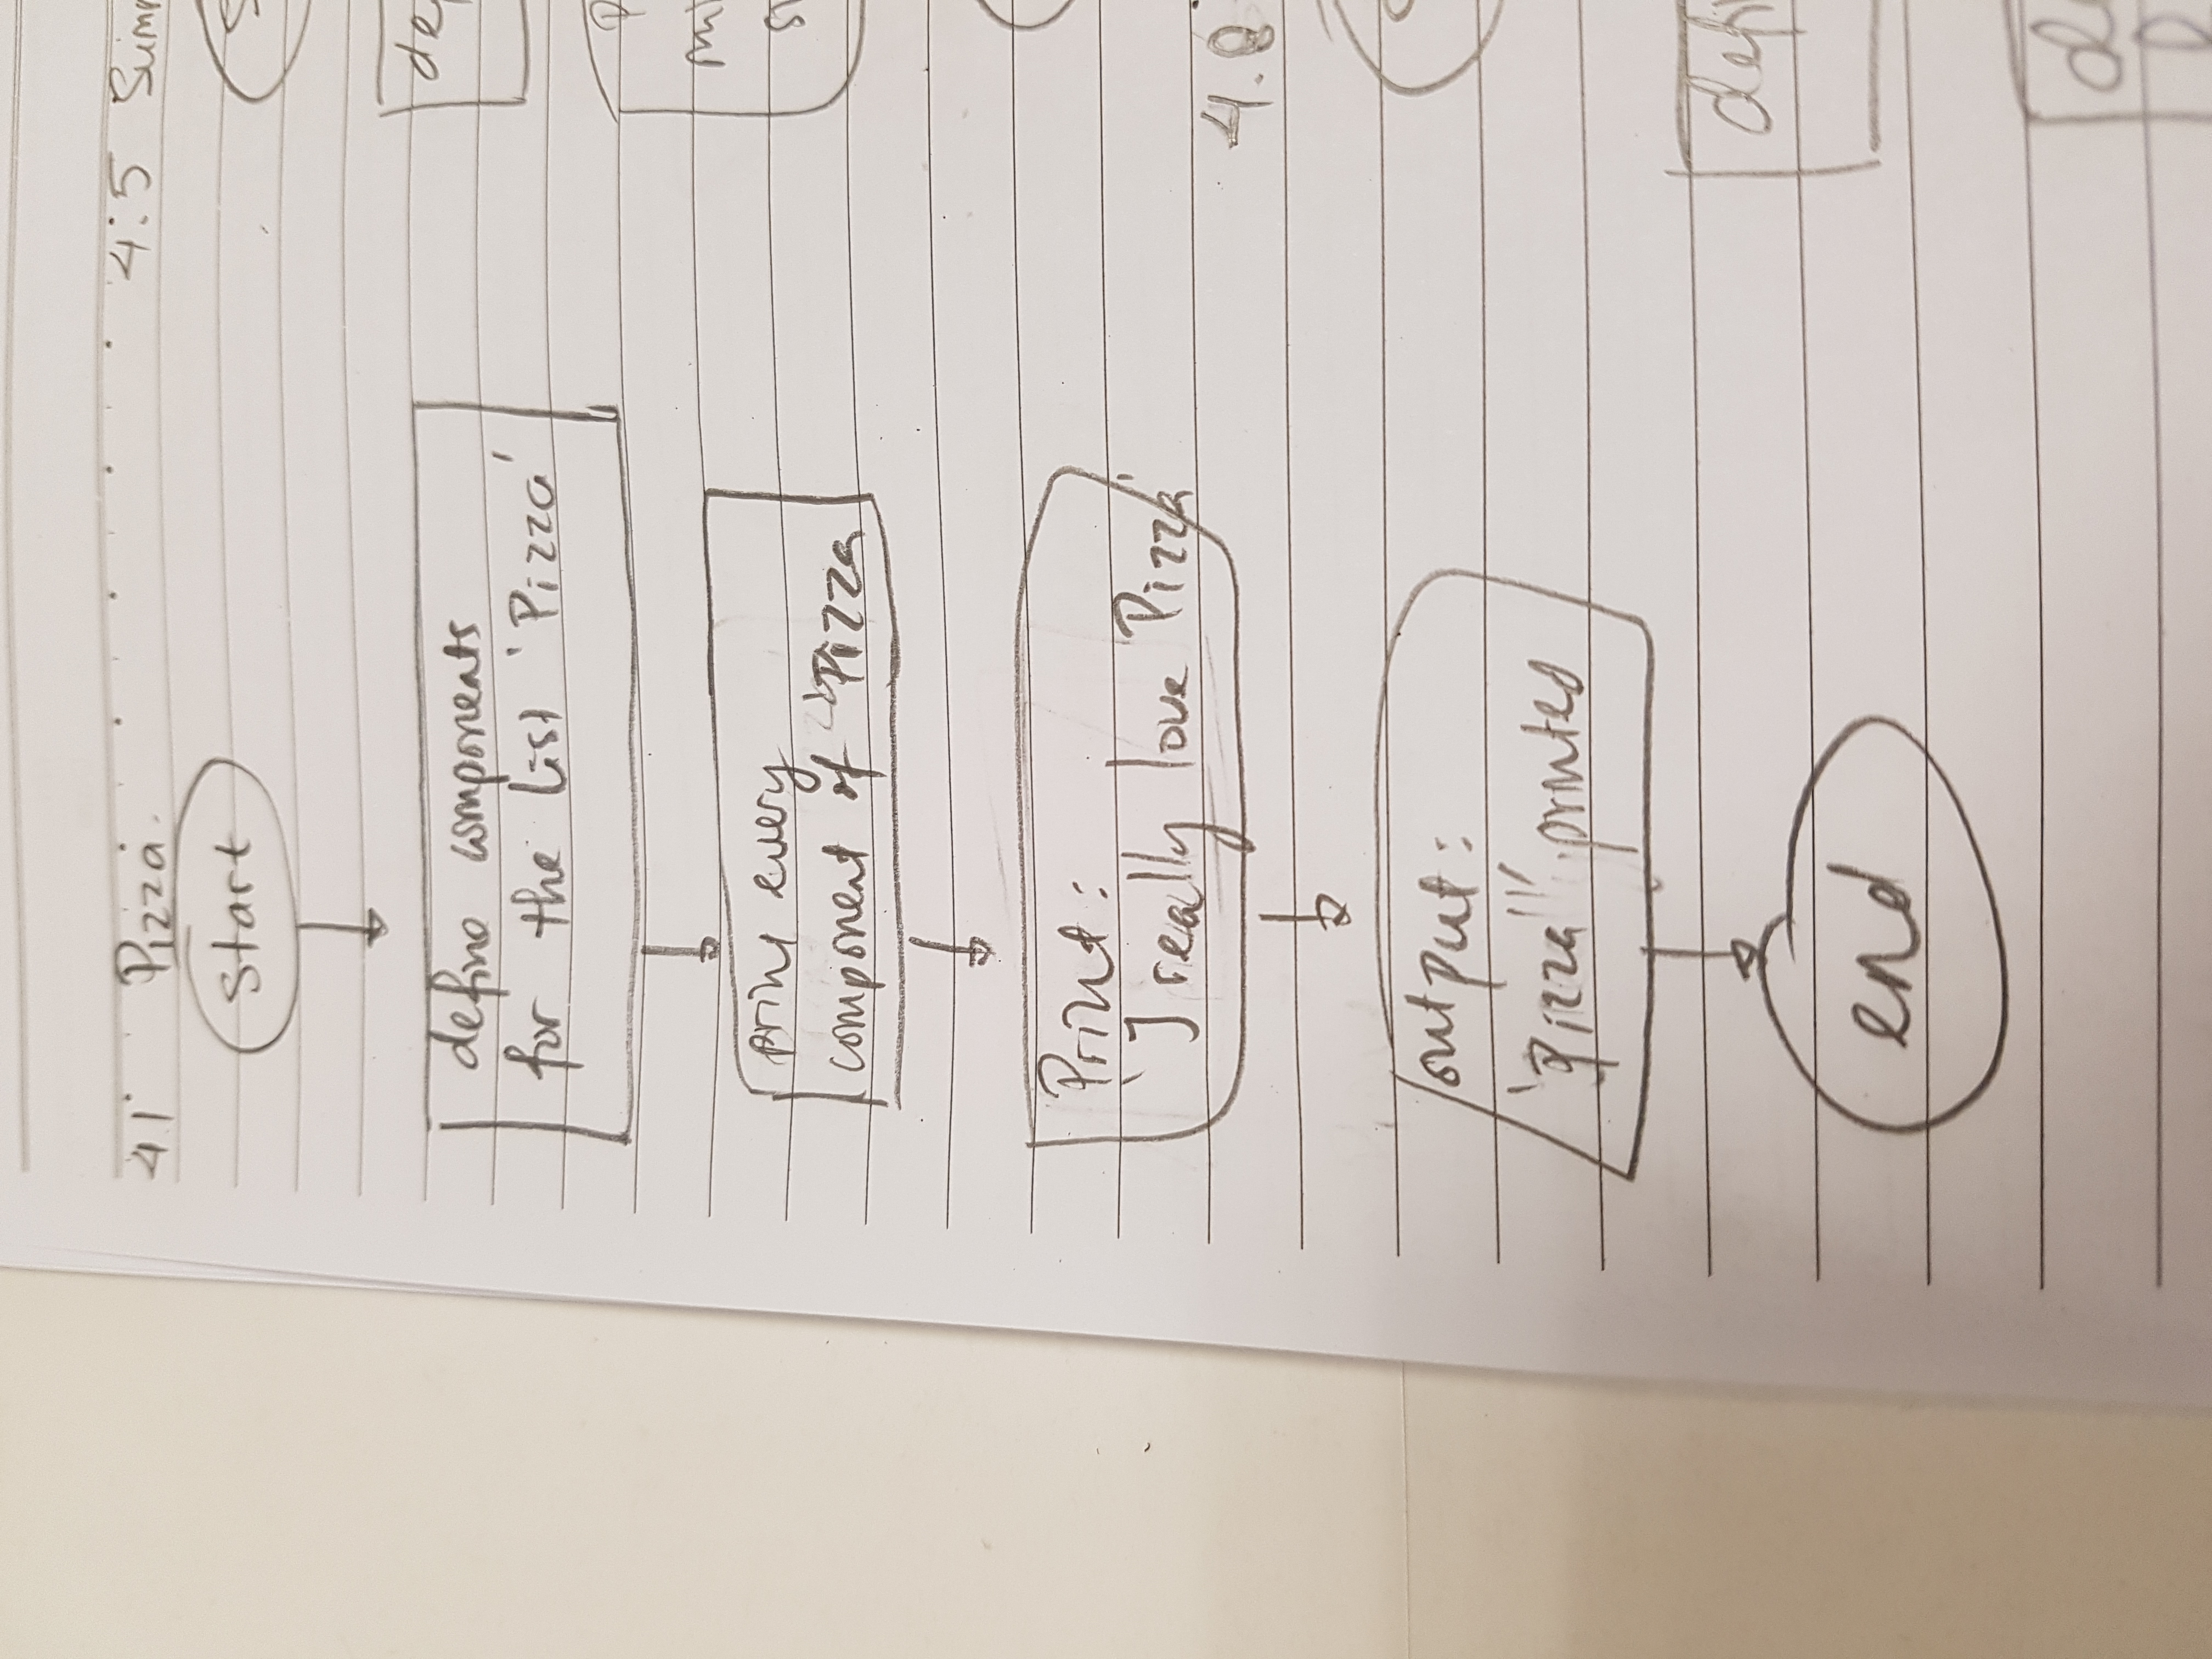 4.1 Pizza.
start
define components
for the list 'Pizza'
print every
component of 'Pizza
Print:
'I really love Pizza'
output:
'Pizza' printed
end
4.5
4.8